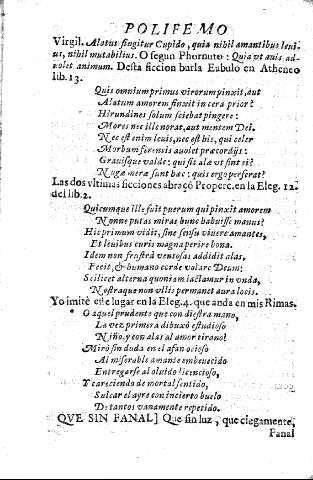 POLIFEMO
Virgil. Alatus fingitur Cupido, quia nihil amantibus leui-
us, nihil mutabilius. O segun Phornuto: Quia vt auis ad-
uolet animum. Desta ficcion burla Eubulo en Atheneo
lib. 13.
Quis omnium primus virorum pinxit, aut
Alatum amorem finxit in cera prior?
Hirundines solum sciebat pingere:
Mores nec ille norat, aut mentem Dei.
Nec est enim leuis, nec est bis, qui celer
Morbum ferentis auolet præcordijs:
Grauisque valde: qui sit ala vt sint ei?
Nugæ meræ sunt hæc: quis ergo perferat?
Las dos vltimas ficciones abraçò Properc. en la Eleg. 12.
del lib. 2.
Quicumque ille fuit puerum qui pinxit amorem
Nonne putas miras hunc habuisse manus?
Hic primum vidit, sine sensu viuere amantes,
Et leuibus curis magna perire bona.
Idem non frustrà ventosas addidit alas.
Fecit, & humano corde volare Deum:
Scilicet alterna quoniam iactamur in vnda,
Nostraque non vllis permanet aura locis.
Yo imitè este lugar en la Eleg. 4. que anda en mis Rimas.
O aquel prudente que con diestra mano,
La vez primera dibuxò estudioso
Niño, y con alas al amor tirano!
Mirò sin duda en el afan ocioso
Al miserable amante embeuecido
Entregarse al oluido licencioso,
Y careciendo de mortal sentido,
Sulcar el ayre con incierto buelo
De tantos vanamente repetido.
QVE SIN FANAL] Que sin luz, que ciegamente,
Fanal